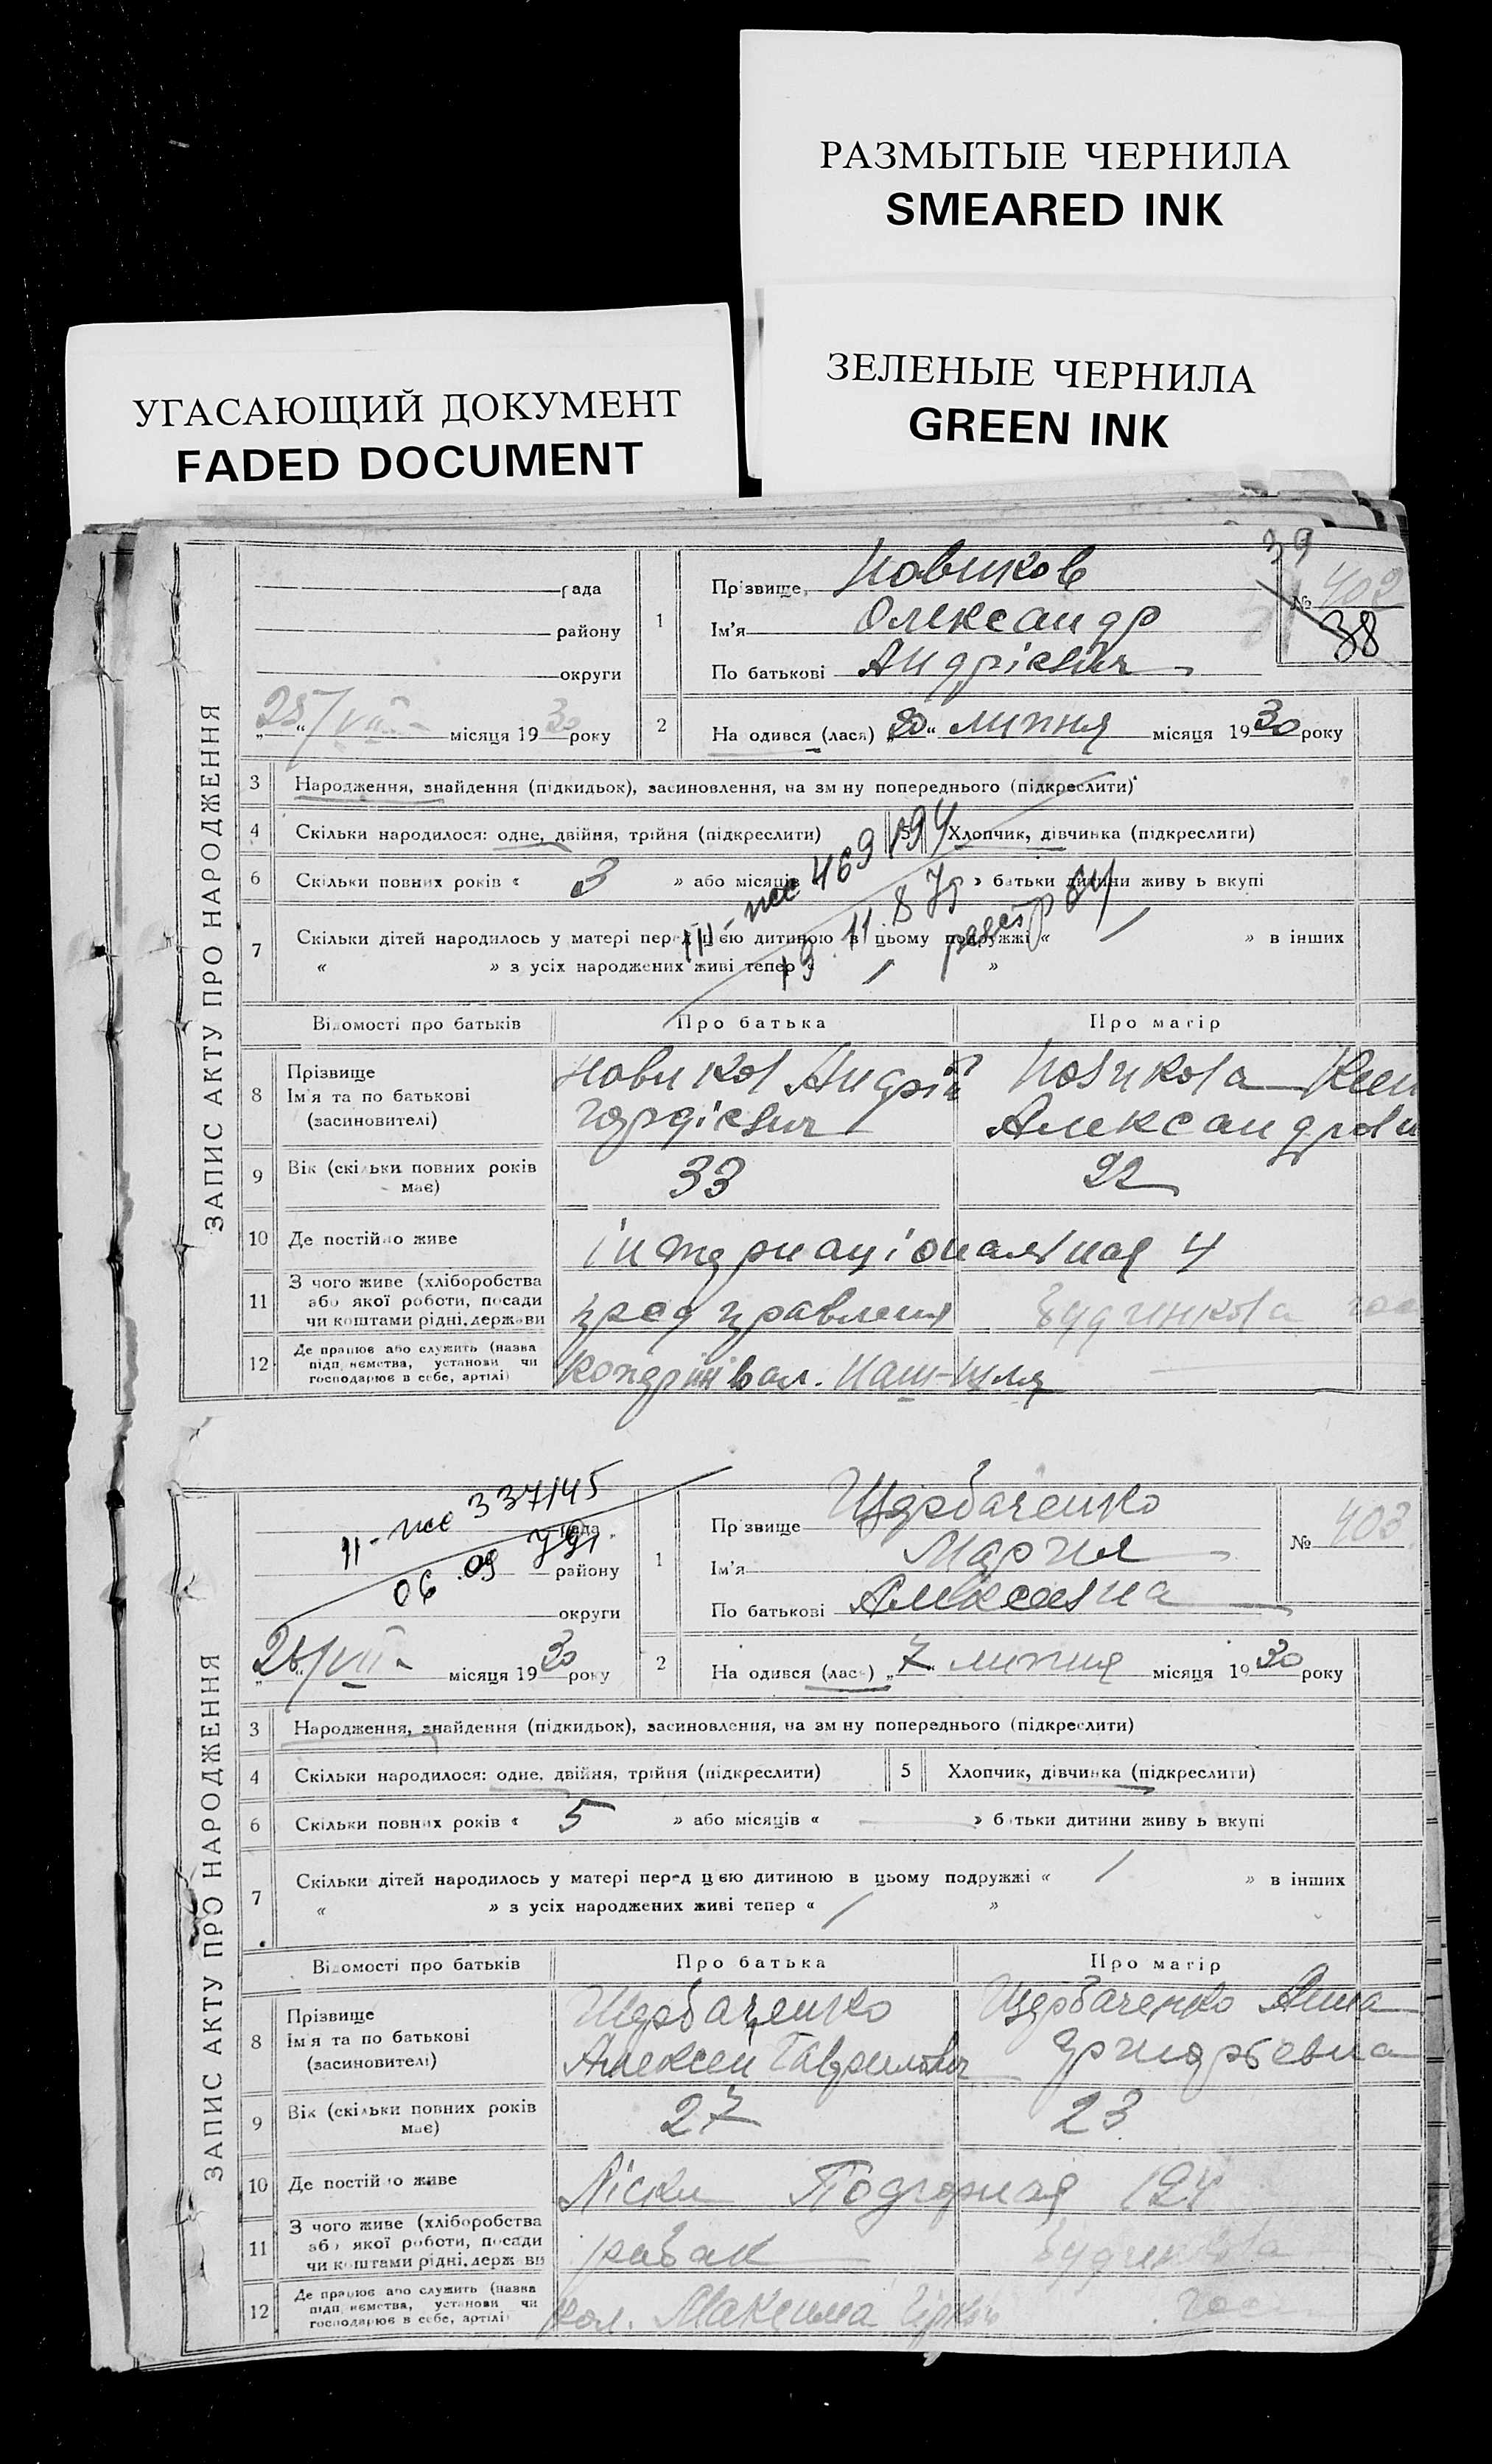 РАЗМЫТЫЕ ЧЕРНИЛА
SMEARED INK
ЗЕЛЕНЫЕ ЧЕРНИЛА
GREEN INK
УГАСАЮЩИЙ ДОКУМЕНТ
FADED DOCUMENT
ЗАПИС АКТУ ПРО НАРОДЖЕННЯ
рада
району
округи
25/VII місяця 1930 року
39
№ 402
38
1 Прізвище Новиков
Ім'я Олександр
По батькові Андрієвич
2 Народився (лася) „20“ липня місяця 1930 року
3 Народження, знайдення (підкидьок), засиновлення, на зміну попереднього (підкреслити)
4 Скільки народилося: одне, двійня, трійня (підкреслити) 5 Хлопчик, дівчинка (підкреслити)
6 Скільки повних років « 3 » або місяців » батьки дитини живуть вкупі
III-ЖС 469194
13.11.87
7 Скільки дітей народилось у матері перед цією дитиною в цьому подружжі « / » в інших
« » з усіх народжених живі тепер « / »
Відомості про батьків Про батька Про матір
8 Прізвище Ім'я та по батькові (засиновителі)
Новиков Андрій
Новикова
Александров
9 Вік (скільки повних років має) 33 22
10 Де постійно живе Інтернаціональная 4
11 З чого живе (хліборобства або якої роботи, посади чи коштами рідні, держави
пред правления
12 Де працює або служить (назва підприємства, установи чи господарює в себе, артілі)
ЗАПИС АКТУ ПРО НАРОДЖЕННЯ
II-ЖС 337145
06.09 79г.
рада
району
округи
26/VII місяця 1930 року
№ 403
1 Прізвище Щербаченко
Ім'я Мария
По батькові Алексеевна
2 Народився (лась) „7“ липня місяця 1930 року
3 Народження, знайдення (підкидьок), засиновлення, на зміну попереднього (підкреслити)
4 Скільки народилося: одне, двійня, трійня (підкреслити) 5 Хлопчик, дівчинка (підкреслити)
6 Скільки повних років « 5 » або місяців « — » батьки дитини живуть вкупі
7 Скільки дітей народилось у матері перед цією дитиною в цьому подружжі « / » в інших
« » з усіх народжених живі тепер « / »
Відомості про батьків Про батька Про матір
8 Прізвище Ім'я та по батькові (засиновителі)
Щербаченко
Алексей Гаврилович
Щербаченко Анна
Григорьевна
9 Вік (скільки повних років має) 27 23
10 Де постійно живе Ліски Подгорная 124
11 З чого живе (хліборобства або якої роботи, посади чи коштами рідні, держави
12 Де працює або служить (назва підприємства, установи чи господарює в себе, артілі)
кол. Максима